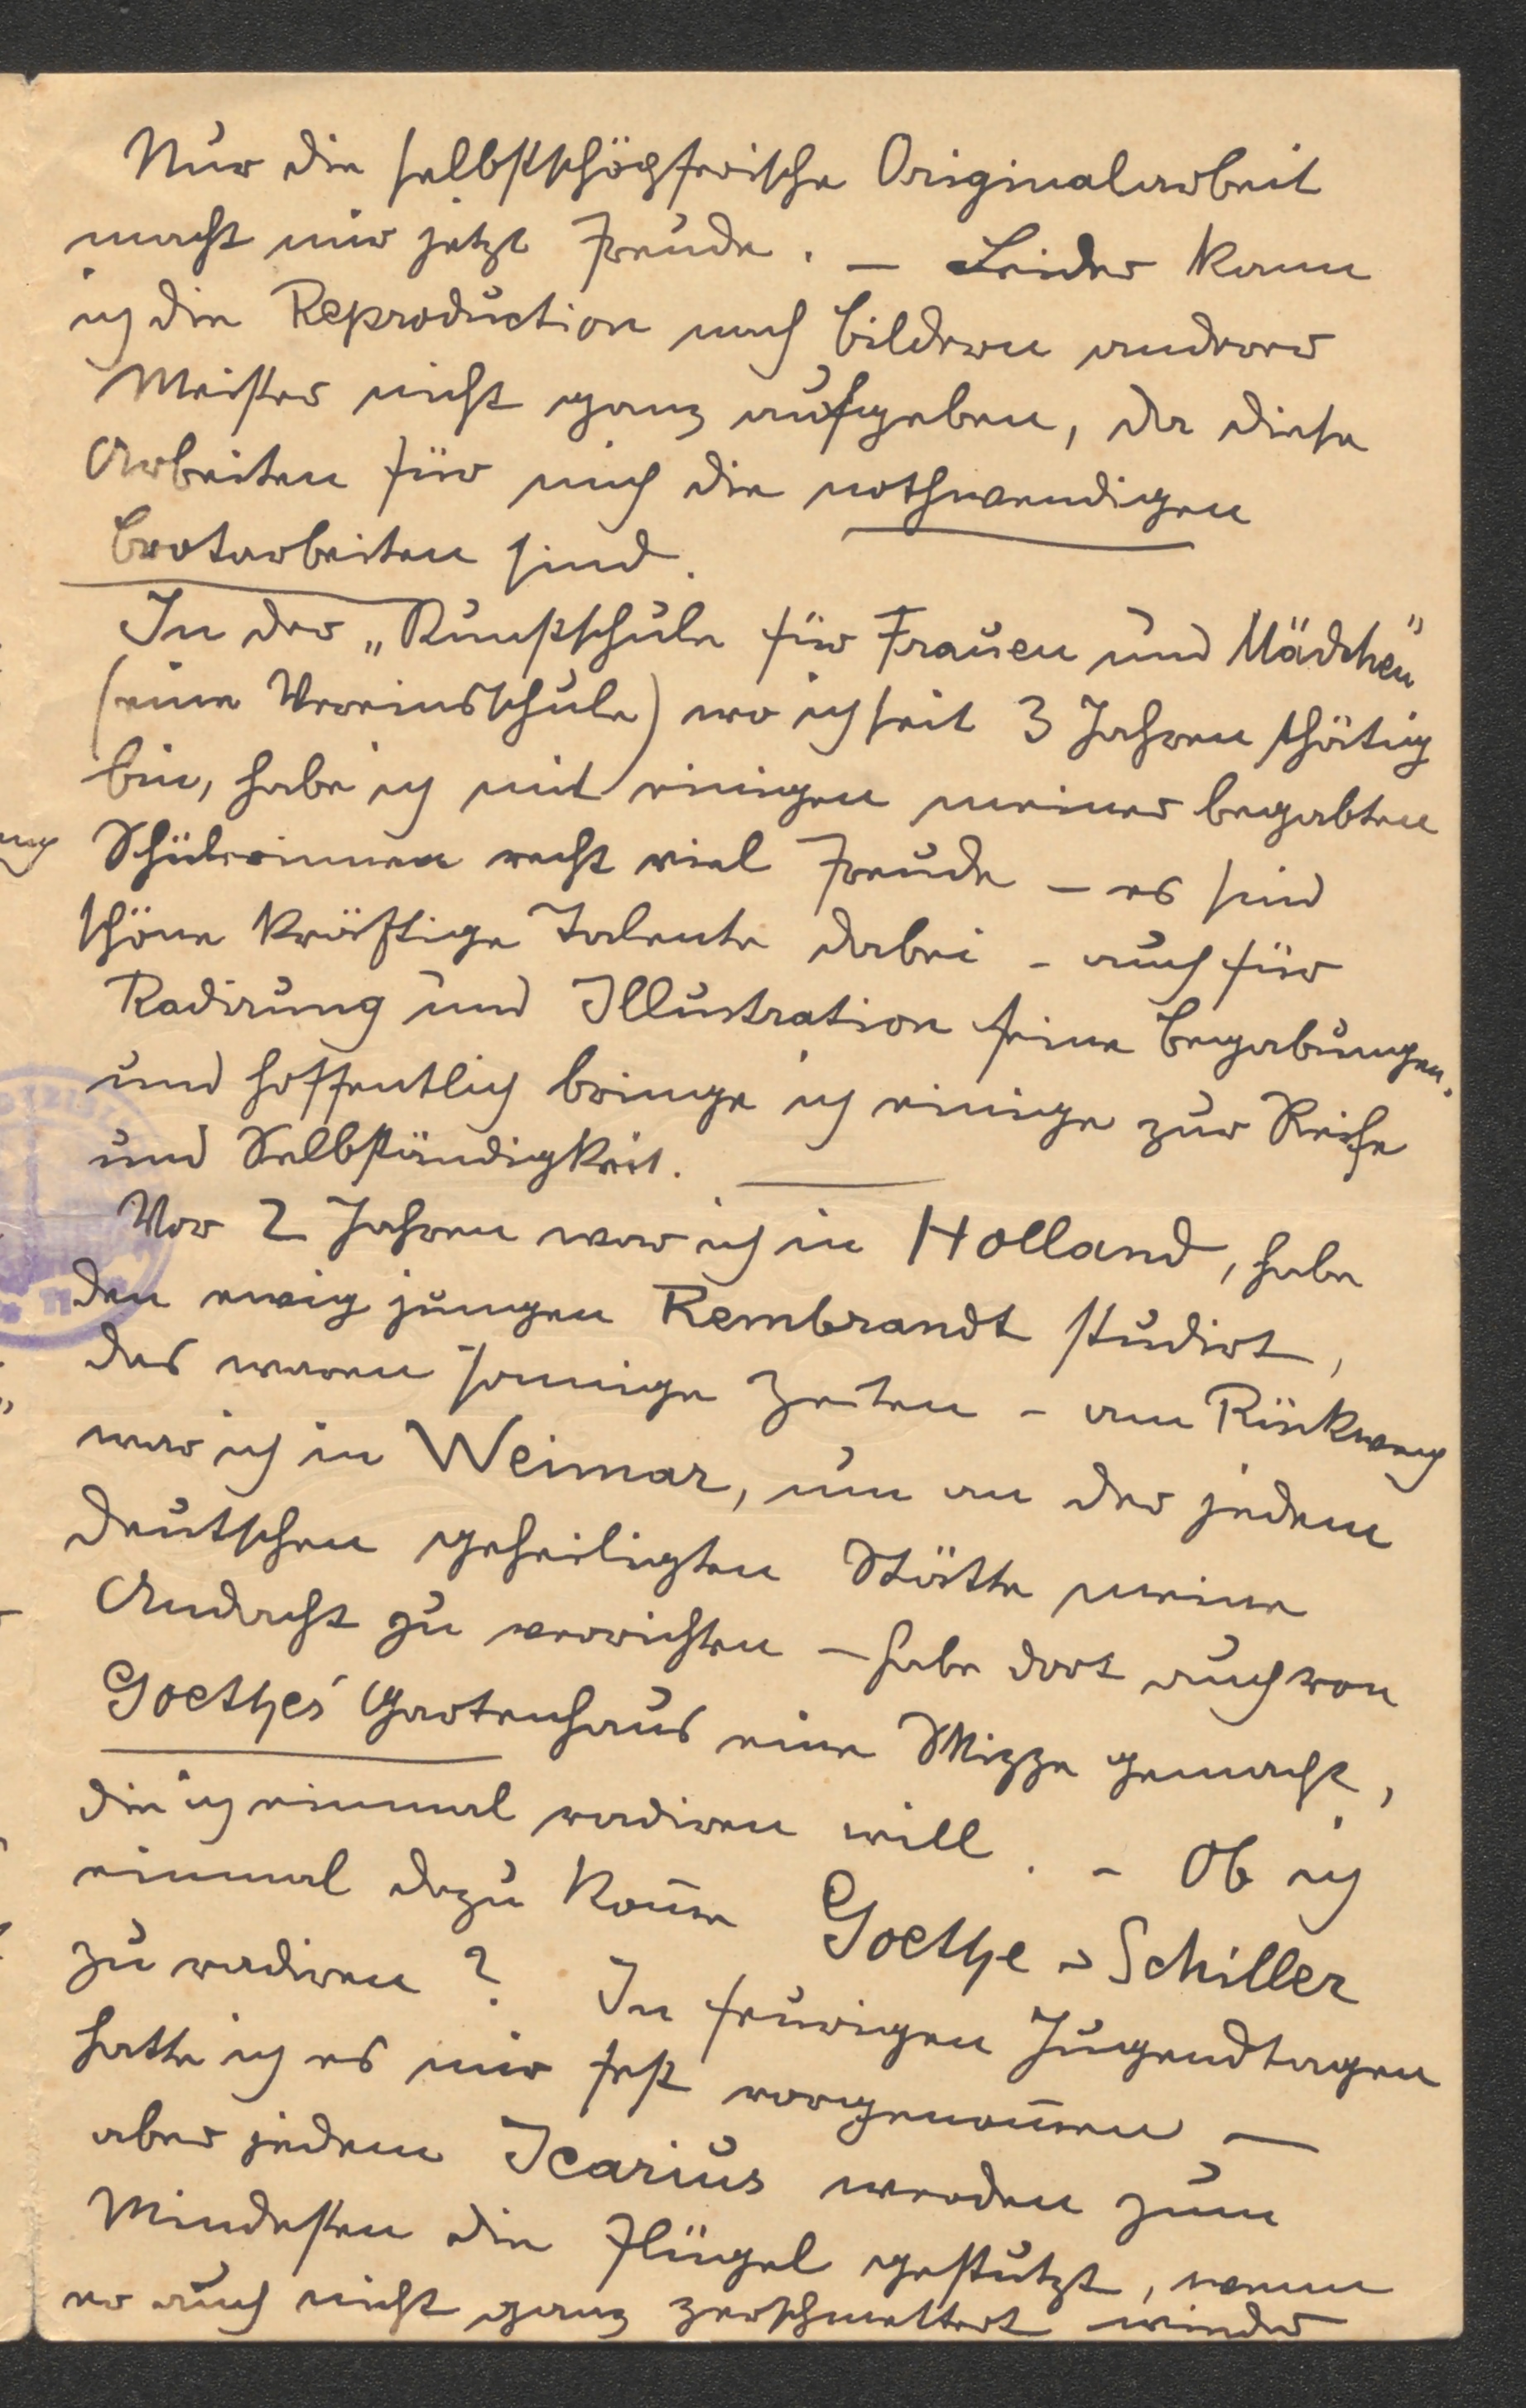 Nur die selbstschöpferische Originalarbeit
macht mir jetzt Freude. — Leider kann
ich die Reproduction nach Bildern anderer
Meister nicht ganz aufgeben, da diese
Arbeiten für mich die nothwendigen
Brotarbeiten sind.
In der „Kunstschule für Frauen und Mädchen"
(eine Vereinsschule) wo ich seit 3 Jahren thätig
bin, habe ich mit einigen meiner begabten
Schülerinnen recht viel Freude – es sind
schöne kräftige Talente dabei – auch für
Radirung und Illustration feine Begabungen.
und hoffentlich bringe ich einige zur Reife
und Selbständigkeit. —
Vor 2 Jahren war ich in Holland, habe
den ewig jungen Rembrandt studirt,
das waren sonnige Zeiten – am Rückweg
war ich in Weimar, um an der jedem
Deutschen geheiligten Stätte meine
Andacht zu verrichten – habe dort auch von
Goethes' Gartenhaus eine Skizze gemacht,
die ich einmal radiren will. – Ob ich
einmal dazu kom̅e Goethe u Schiller
zu radiren? In feurigen Jugendtagen
hatte ich es mir fest vorgenom̅en —
aber jedem Icarius werden zum
Mindesten die Flügel gestutzt, wenn
er auch nicht ganz zerschmettert wieder